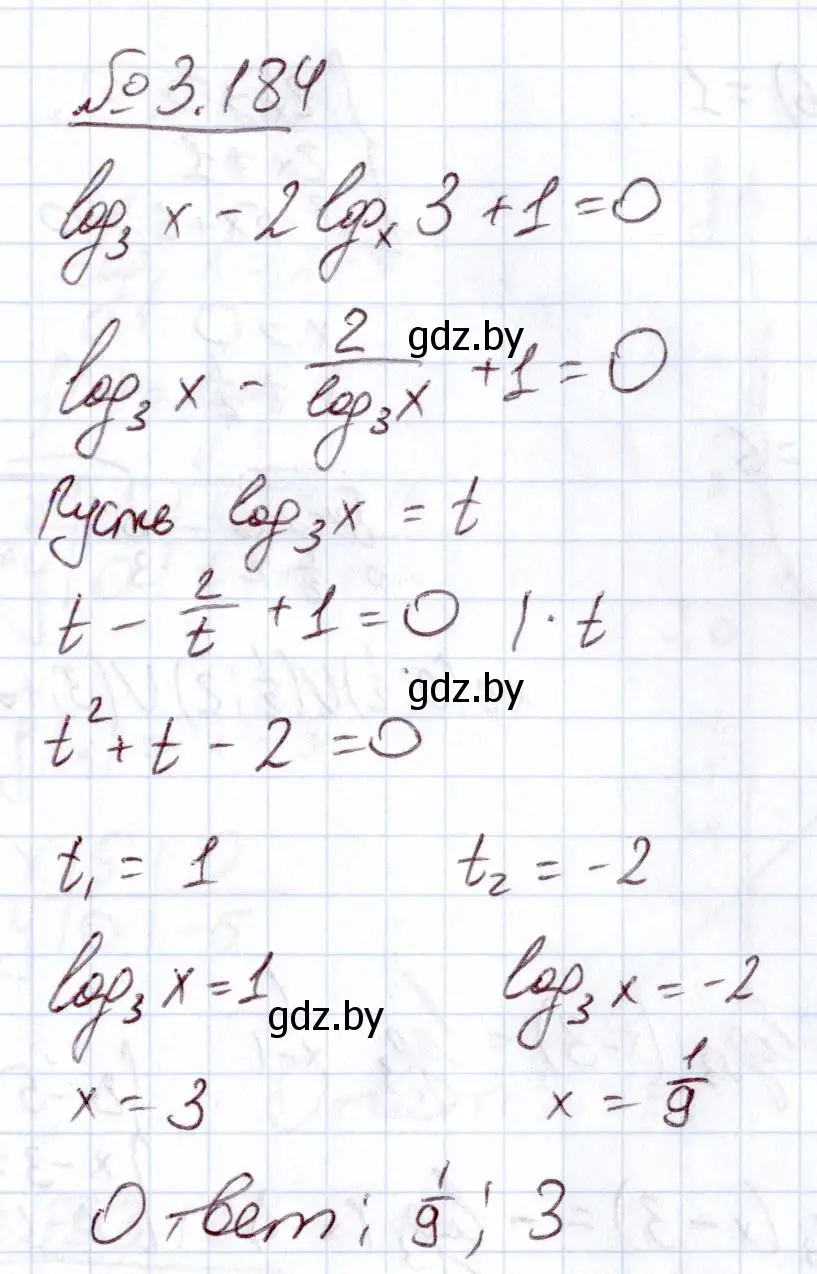 № 3.184
log₃ x - 2 logₓ 3 + 1 = 0
log₃ x - 2/log₃ x + 1 = 0
gdz.by
Пусть log₃ x = t
t - 2/t + 1 = 0 | · t
gdz.by
t² + t - 2 = 0
t₁ = 1 t₂ = -2
log₃ x = 1 log₃ x = -2
gdz.by
x = 3 x = 1/9
Ответ: 1/9; 3